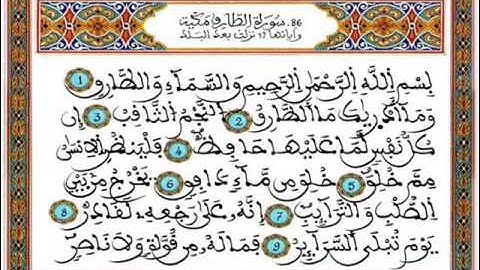 86. سورة الطارق مكية
وآياتها 17 نزلت بعد البلد
بِسْمِ اللَّهِ الرَّحْمَٰنِ الرَّحِيمِ وَالسَّمَآءِ وَالطَّارِقِ 1
وَمَآ أَدْرِيكَ مَا الطَّارِقُ 2 النَّجْمُ الثَّاقِبُ 3 إِن
كُلُّ نَفْسٍ لَمَا عَلَيْهَا حَافِظٌ 4 فَلْيَنظُرِ الِانسَٰنُ
مِمَّ خُلِقَ 5 خُلِقَ مِن مَّآءٍ دَافِقٍ 6 يَخْرُجُ مِنۢ بَيْنِ
الصُّلْبِ وَالتَّرَآئِبِ 7 إِنَّهُۥ عَلَىٰ رَجْعِهِۦ لَقَادِرٌ 8
يَوْمَ تُبْلَى السَّرَآئِرُ 9 فَمَا لَهُۥ مِن قُوَّةٍ وَلَا نَاصِرٍ